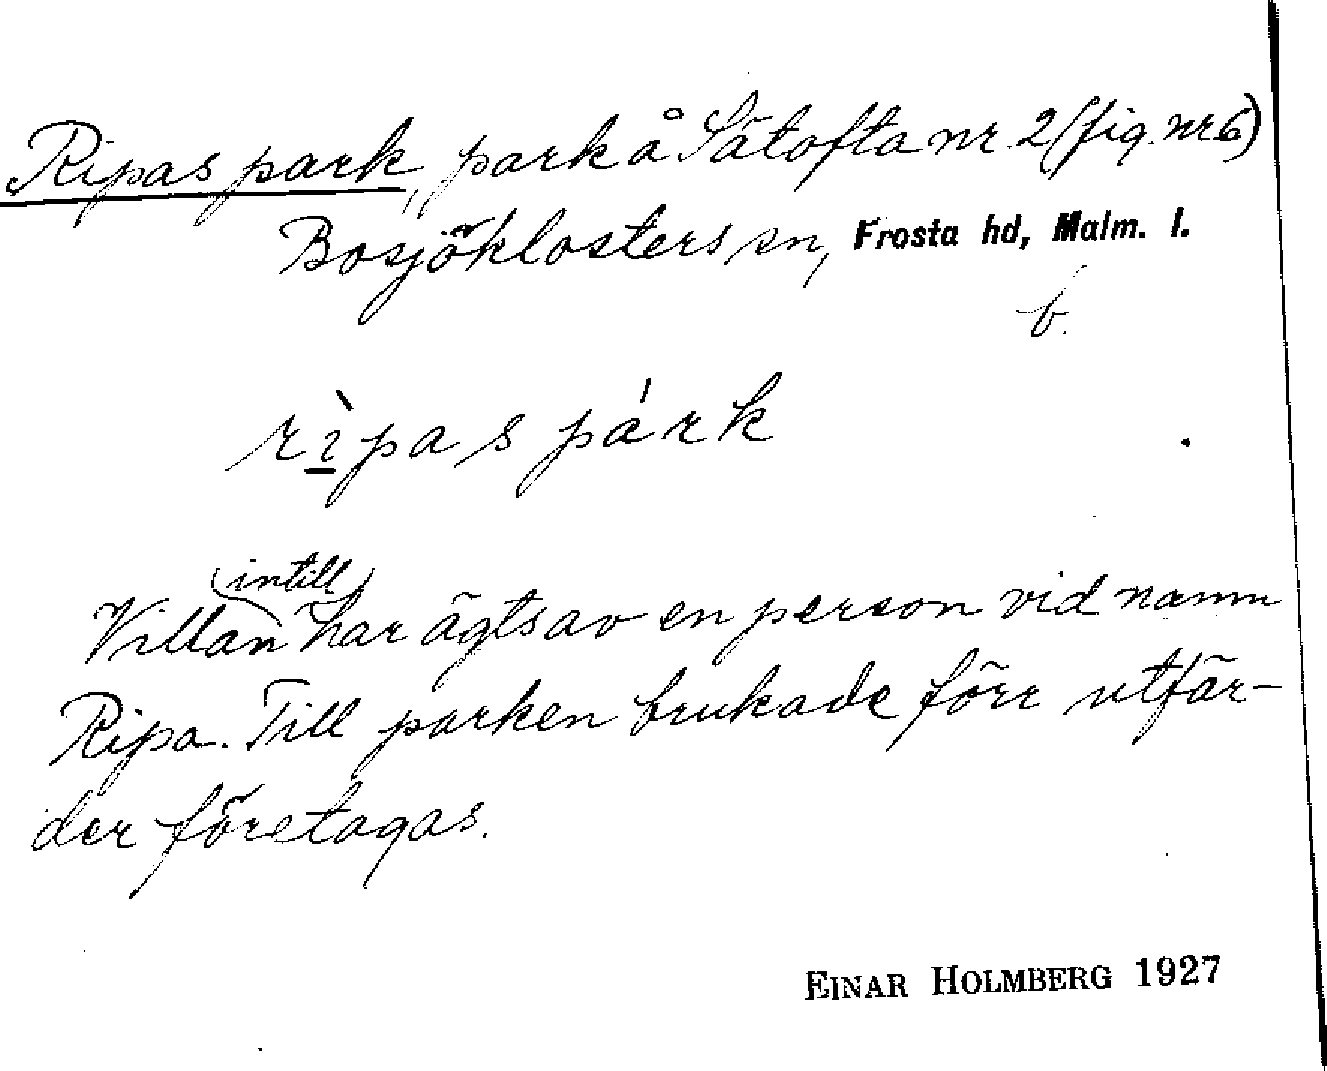 Ripas park, park å Sätofta nr 2 (fig. nr 6)
Bosjöklosters sn, Frosta hd, Malm. l.
b.
rìpas párk
Villan (intill) har ägts av en person vid namn
Ripa. Till parken brukade förr utfär-
der företagas.
EINAR HOLMBERG 1927